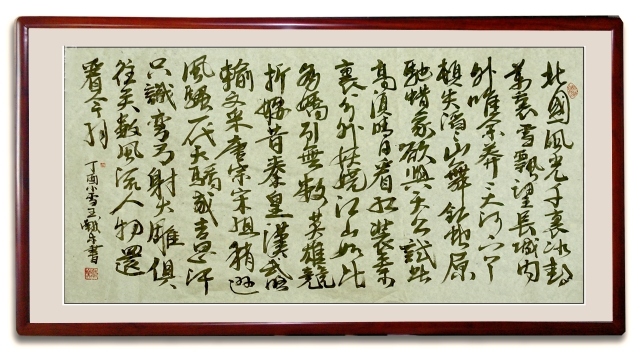 北國風光千裏冰封
萬裏雪飄望長城內
外唯余莽々大河上下
頓失滔々山舞銀蛇原
馳蠟象欲與天公試比
高須晴日看紅裝素
裹分外妖嬈江山如此
多嬌引無數英雄競
折腰昔秦皇漢武略
輸文采唐宗宋祖稍遜
風騷一代天驕成吉思汗
只識彎弓射大雕俱
往矣數風流人物還
看今朝
丁酉小雪王書